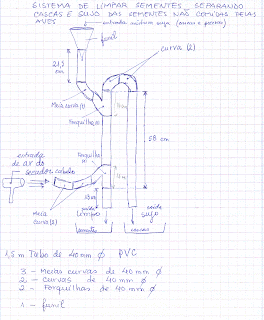 SISTEMA DE LIMPAR SEMENTES, SEPARANDO
CASCAS E SUJO DAS SEMENTES NÃO COMIDAS PELAS
AVES
entrada mistura suja (cascas e
funil
curva (2)
21,5
cm
Meia curva (1)
Forquilha (1)
58 cm
Forquilha
entrada
de ar do
secador cabelo
Meia
curva (2)
saída
limpo
saída
sujo
semente
cascas
1,5 m Tubo de 40 mm Ø PVC
3 - Meias curvas de 40 mm Ø
2 - Curvas de 40 mm Ø
2 - Forquilhas de 40 mm Ø
1 - funil